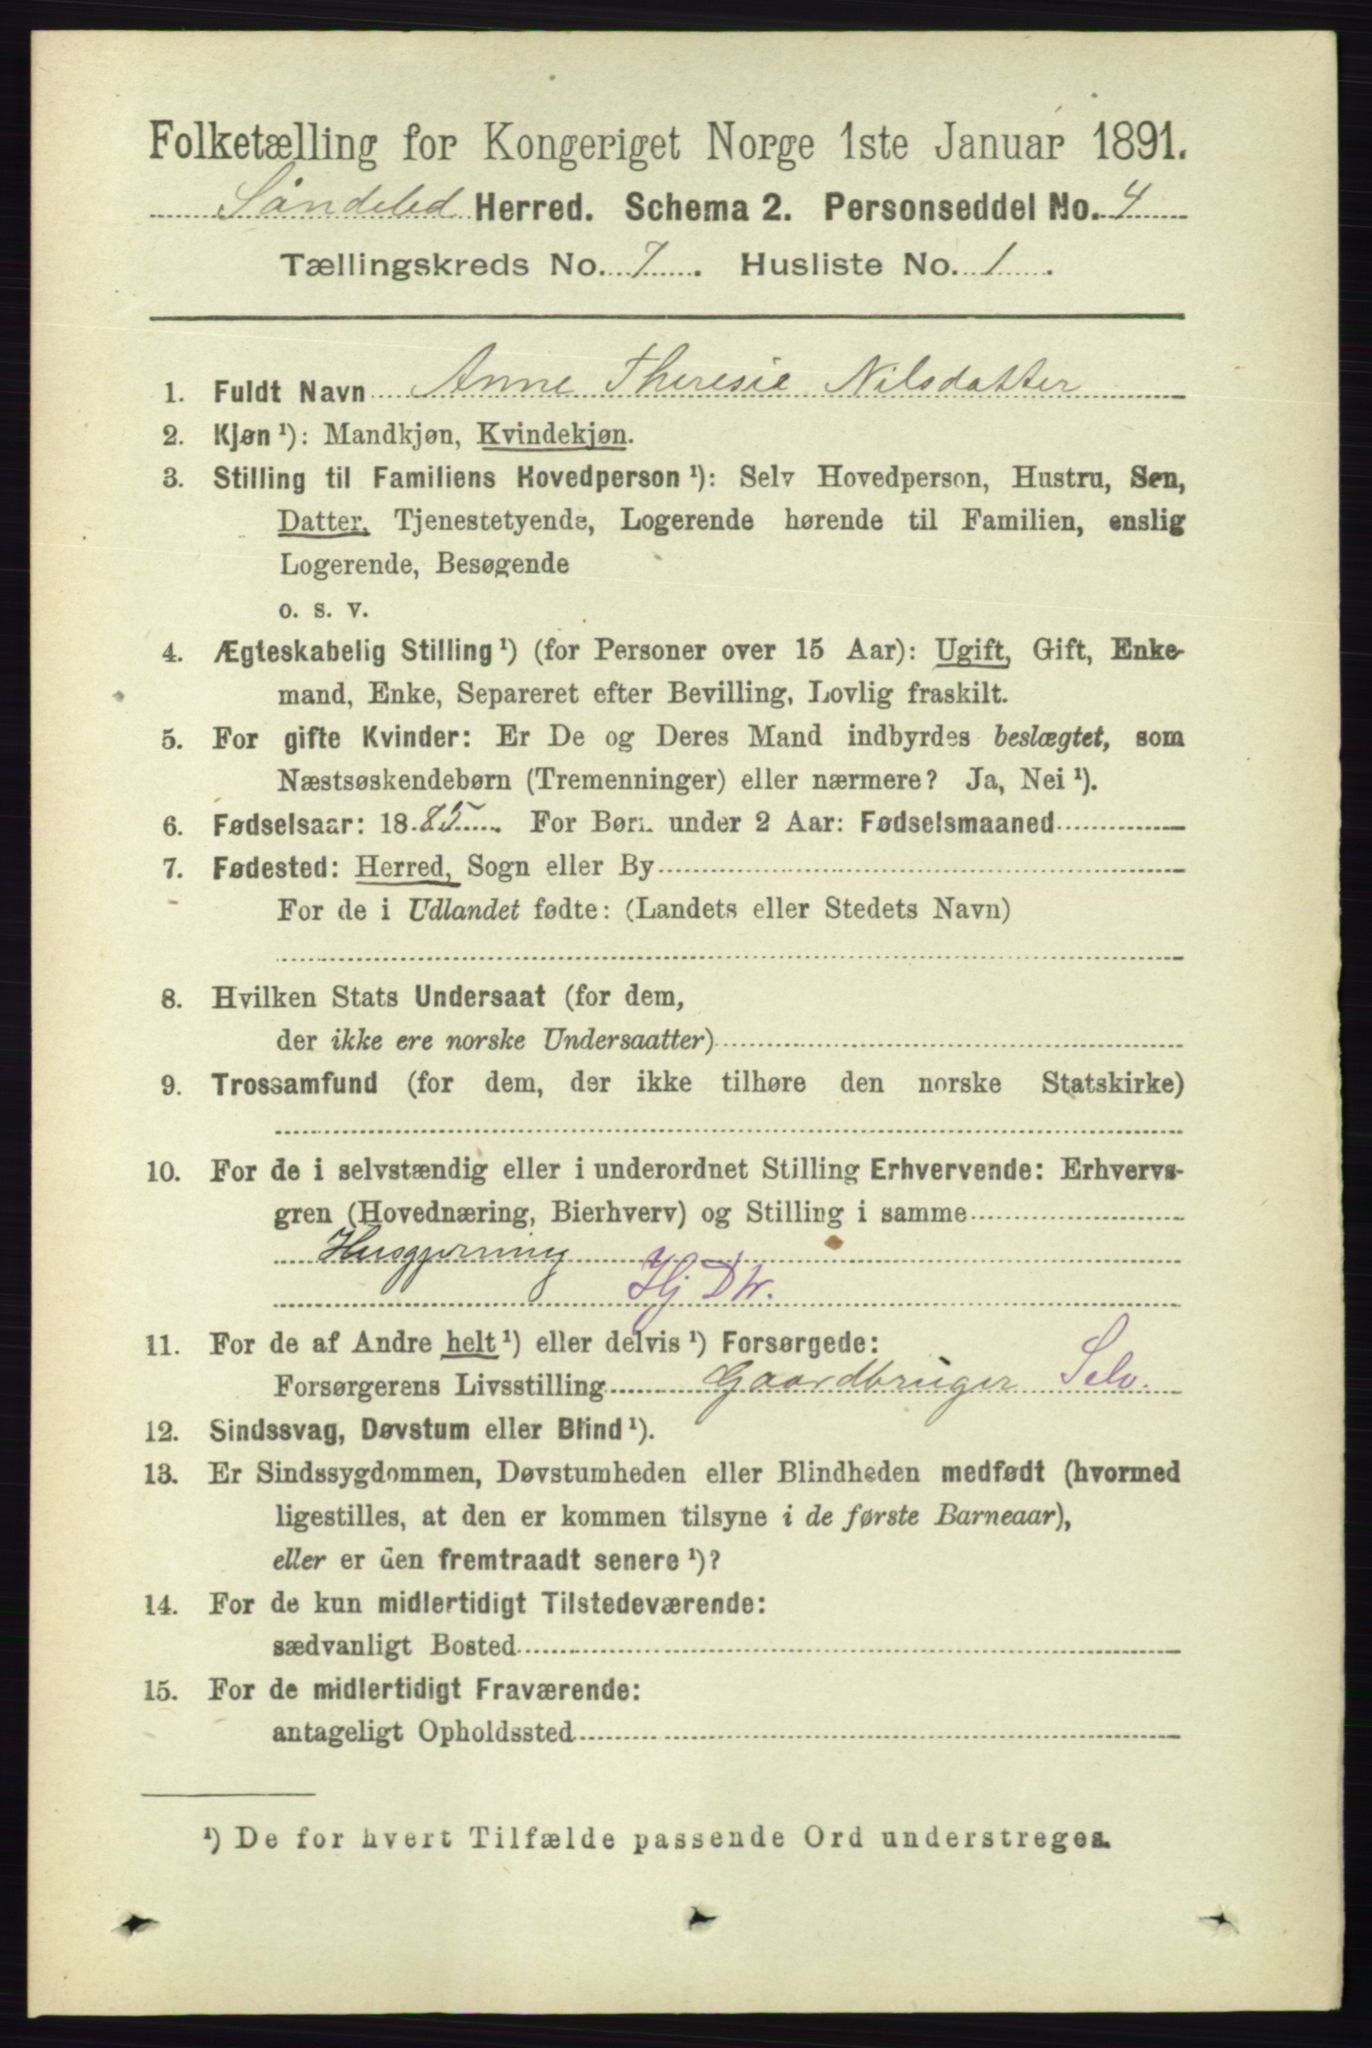 Folketælling for Kongeriget Norge 1ste Januar 1891.
Søndeled Herred. Schema 2. Personseddel No. 4
Tællingskreds No. 7. Husliste No. 1.
1. Fuldt Navn Anne Theresie Nilsdatter
2. Kjøn ¹): Mandkjøn, Kvindekjøn.
3. Stilling til Familiens Hovedperson ¹): Selv Hovedperson, Hustru, Søn,
Datter, Tjenestetyende, Logerende hørende til Familien, enslig
Logerende, Besøgende
o. s. v.
4. Ægteskabelig Stilling ¹) (for Personer over 15 Aar): Ugift, Gift, Enke-
mand, Enke, Separeret efter Bevilling, Lovlig fraskilt.
5. For gifte Kvinder: Er De og Deres Mand indbyrdes beslægtet, som
Næstsøskendebørn (Tremenninger) eller nærmere? Ja, Nei ¹).
6. Fødselsaar: 1885. For Børn under 2 Aar: Fødselsmaaned
7. Fødested: Herred, Sogn eller By
For de i Udlandet fødte: (Landets eller Stedets Navn)
8. Hvilken Stats Undersaat (for dem,
der ikke ere norske Undersaatter)
9. Trossamfund (for dem, der ikke tilhøre den norske Statskirke)
10. For de i selvstændig eller i underordnet Stilling Erhvervende: Erhvervs-
gren (Hovednæring, Bierhverv) og Stilling i samme
Husgjerning
Hj Dtr.
11. For de af Andre helt ¹) eller delvis ¹) Forsørgede:
Forsørgerens Livsstilling Gaardbruger Selv.
12. Sindssvag, Døvstum eller Blind ¹).
13. Er Sindssygdommen, Døvstumheden eller Blindheden medfødt (hvormed
ligestilles, at den er kommen tilsyne i de første Barneaar),
eller er den fremtraadt senere ¹)?
14. For de kun midlertidigt Tilstedeværende:
sædvanligt Bosted
15. For de midlertidigt Fraværende:
antageligt Opholdssted
¹) De for hvert Tilfælde passende Ord understreges.